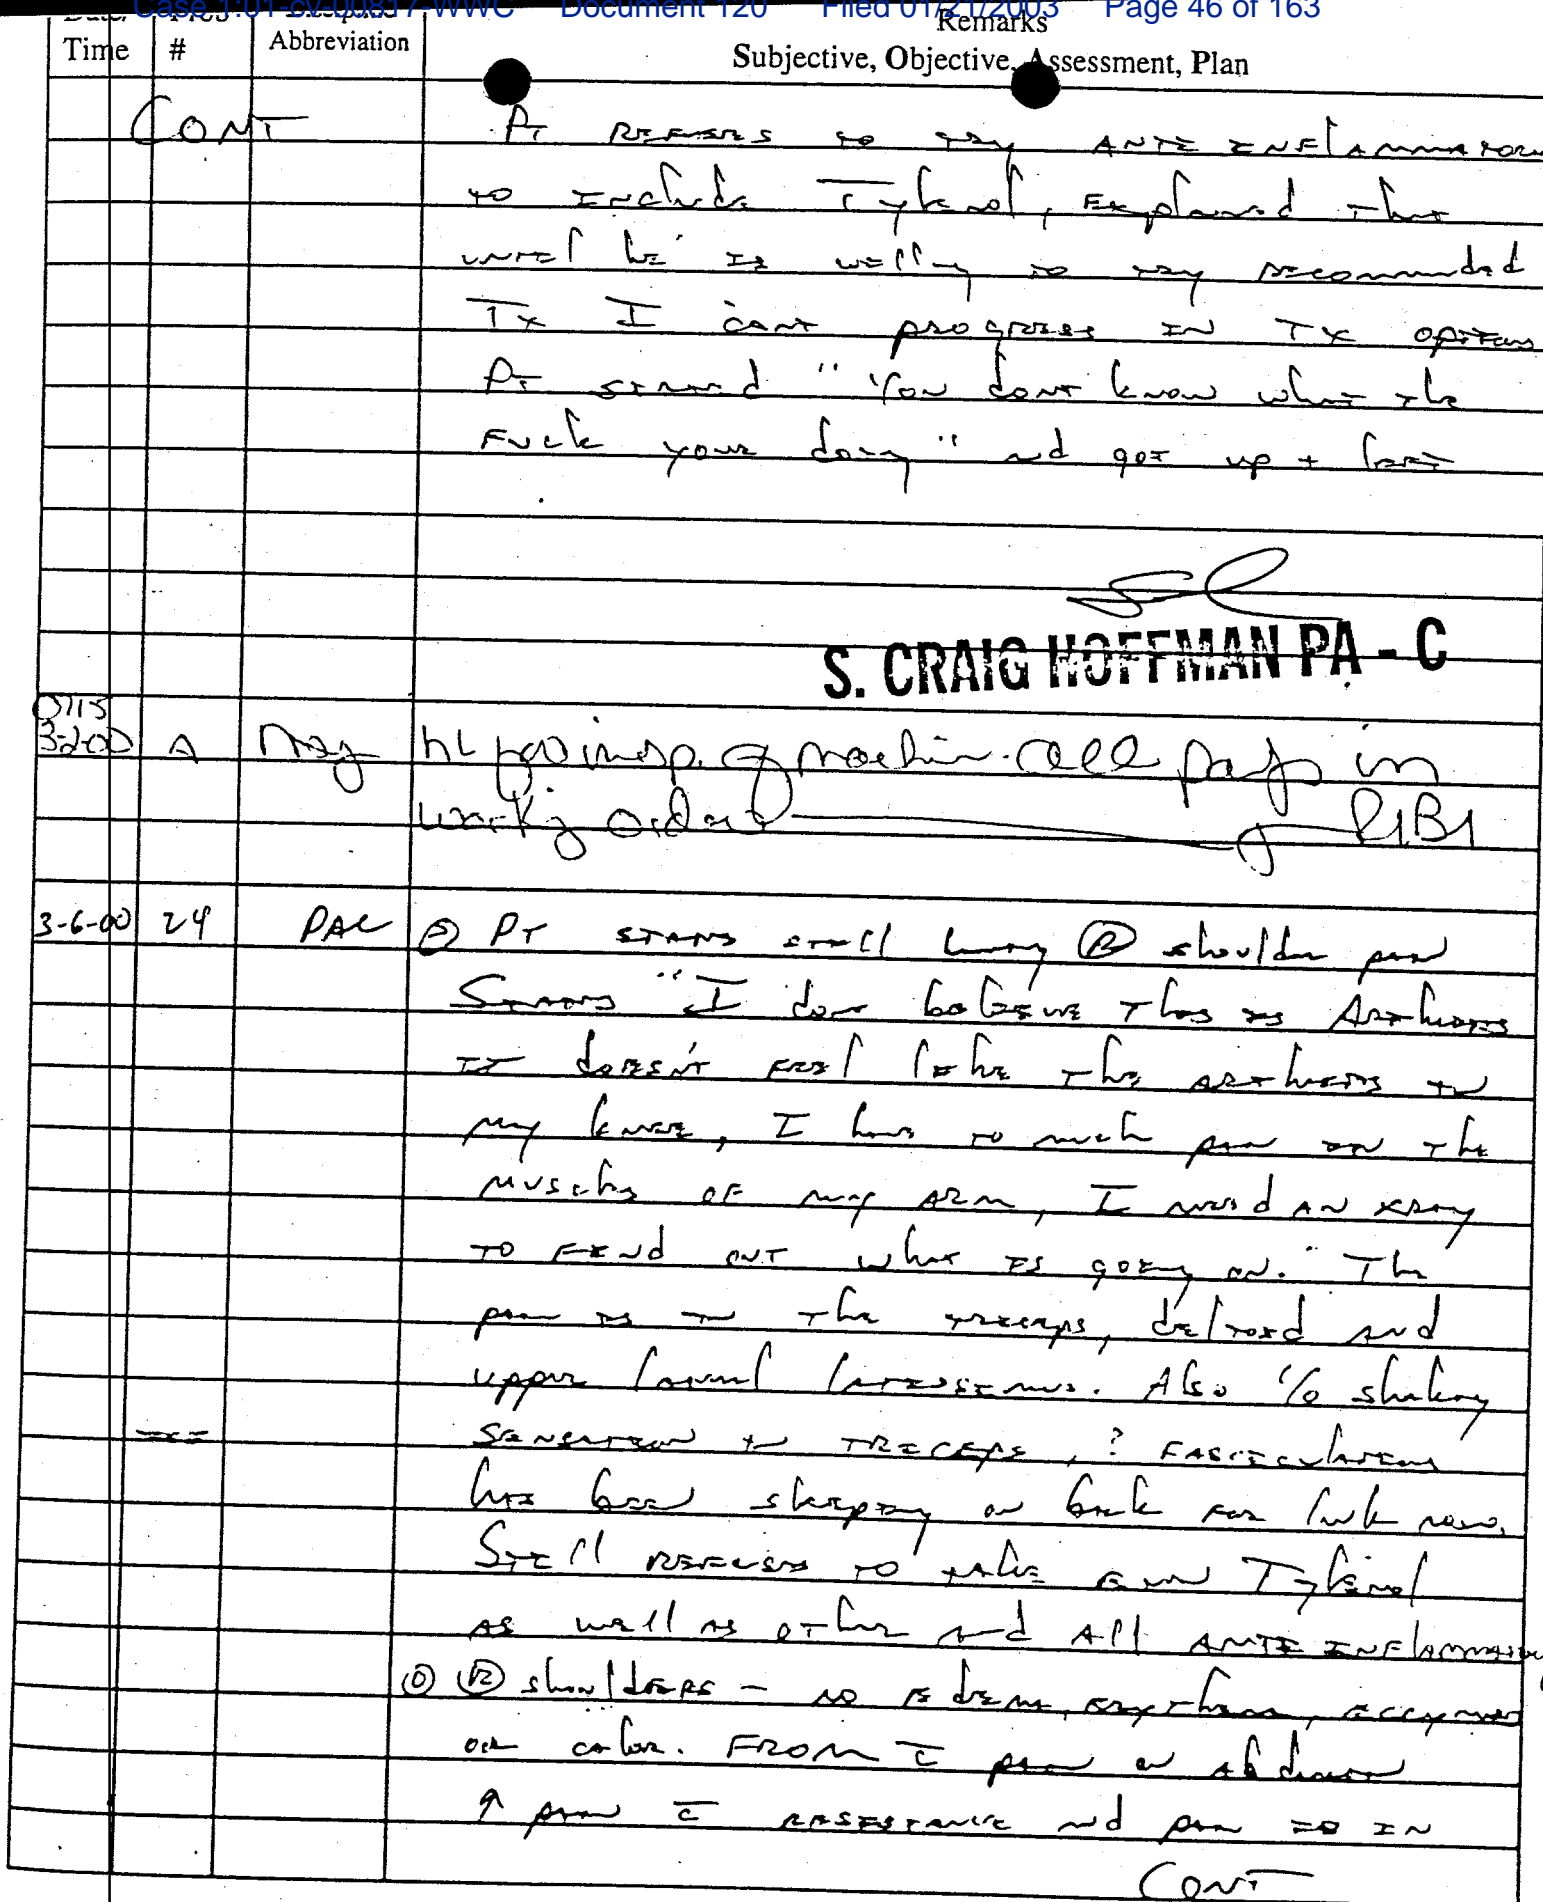 Case 1:01-cv-00817-WWC Document 120 Filed 01/21/2003 Page 46 of 163
Remarks
Time # Abbreviation Subjective, Objective, Assessment, Plan
CONT Pt Refuses to try ANTI INFlAmmatory
to Include Tylenol, Explained that
until he is willing to try recommended
Tx I cant progress IN Tx options
Pt stated "You dont know what the
Fuck your doing" and got up + left
S. CRAIG HOFFMAN PA - C
0715
3-2-00 A insp. of machin. cell in
working order
3-6-00 24 PAC Ⓢ PT states still having Ⓡ shoulder pain
States "I dont believe this is Arthritis
IT doesn't feel like the arthritis in
my knee, I have to much pain in the
muscles of my ARM, I need AN xray
TO FIND OUT what is going on." The
pain is in the triceps, deltoid and
upper lateral latissimus. Also c/o shaking
sensation in TRICEPS, ? FASCICulations
has been sleeping on back for now.
Still refuses TO take even Tylenol
AS well as other and All ANTI INFlammatory
Ⓞ Ⓡ shoulders - no edema, erythema, eccymosis
or calor. FROM c̄ pain on abduction
↑ pain c̄ resistance and pain IN
CONT